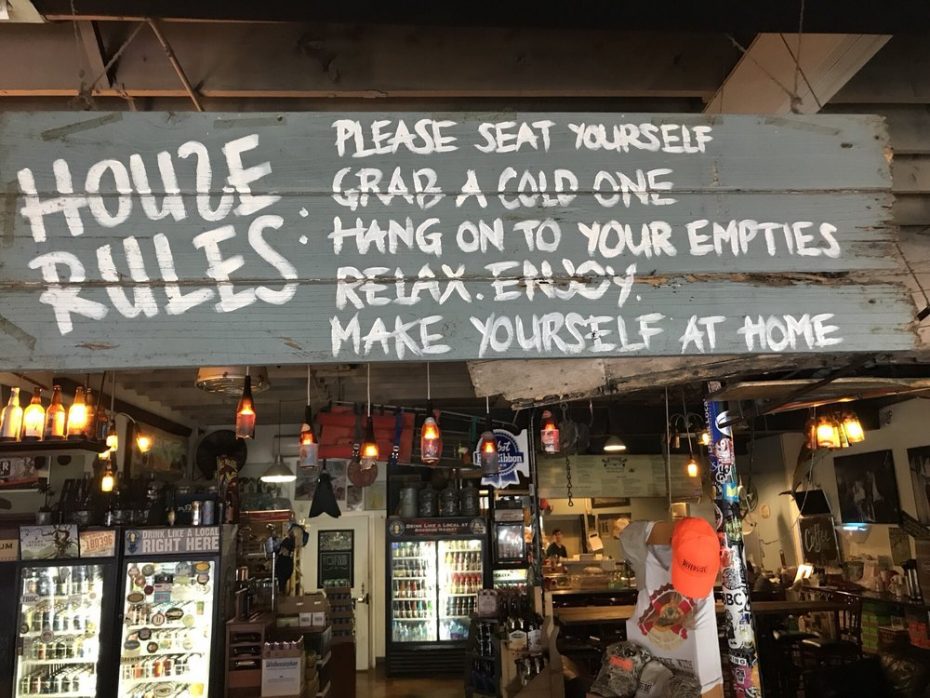 HOUSE RULES:
PLEASE SEAT YOURSELF
GRAB A COLD ONE
HANG ON TO YOUR EMPTIES
RELAX. ENJOY.
MAKE YOURSELF AT HOME
DRINK LIKE A LOCAL
RIGHT HERE
DRINK LIKE A LOCAL AT
Ribbon
Coffee